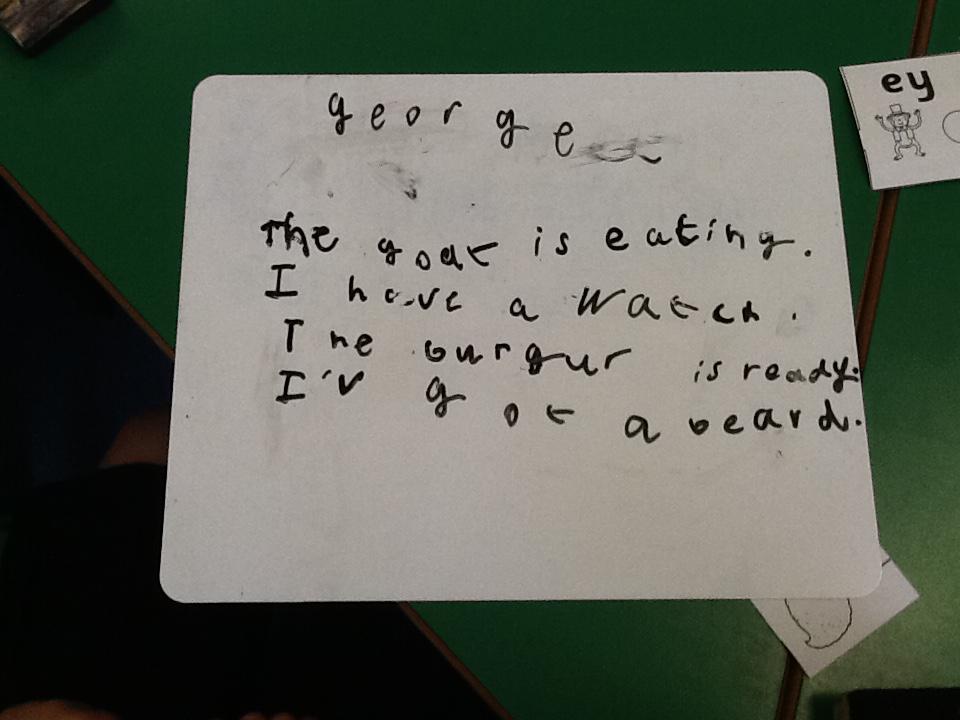 george
ey
The goat is eating.
I have a watch.
The burgur is ready.
I'v got a beard.